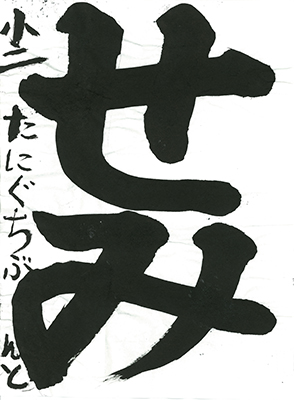 せみ
小二 たにぐちぶんと